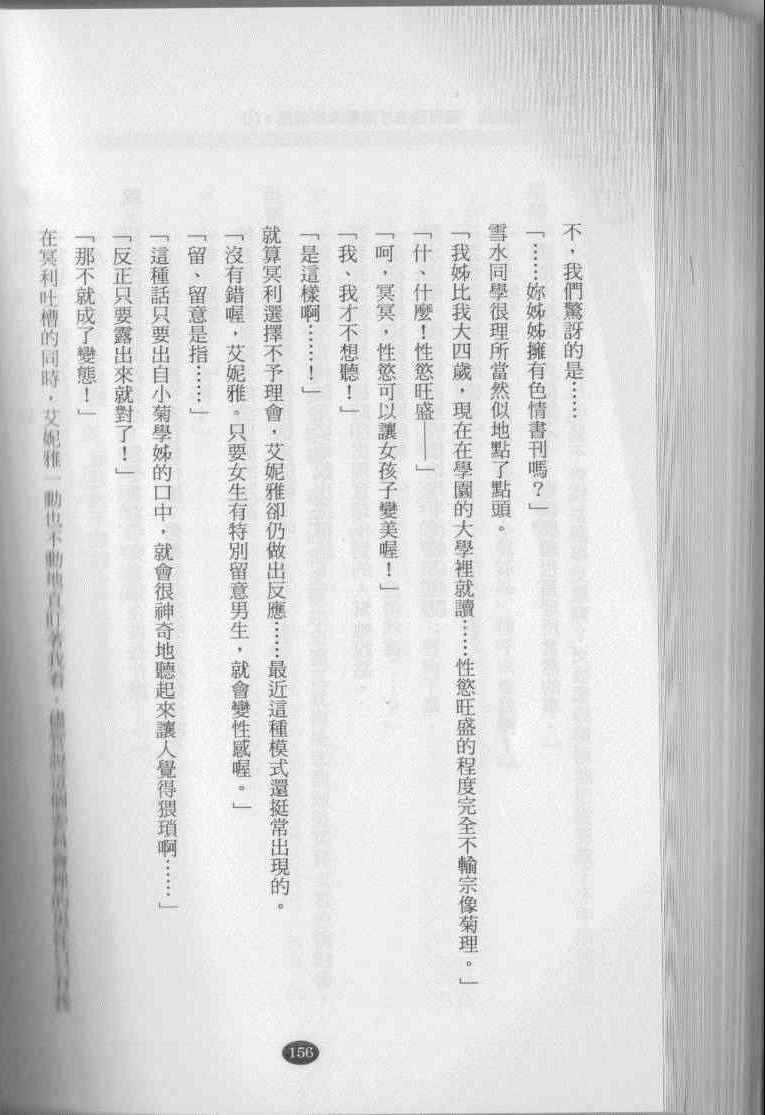 不，我們驚訝的是……
「……妳姊姊擁有色情書刊嗎？」
雪水同學很理所當然似地點了點頭。
「我姊比我大四歲，現在在學園的大學裡就讀……性慾旺盛的程度完全不輸宗像菊理。」
「什、什麼！性慾旺盛——」
「呵，冥冥，性慾可以讓女孩子變美喔！」
「我、我才不想聽！」
「是這樣啊……！」
就算冥利選擇不予理會，艾妮雅卻仍做出反應……最近這種模式還挺常出現的。
「沒有錯喔，艾妮雅。只要女生有特別留意男生，就會變性感喔。」
「留、留意是指……」
「這種話只要出自小菊學姊的口中，就會很神奇地聽起來讓人覺得猥瑣啊……」
「反正只要露出來就對了！」
「那不就成了變態！」
在冥利吐槽的同時，艾妮雅一動也不動地直盯著我看。
156